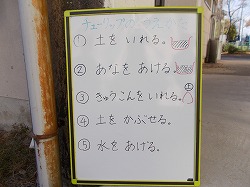 ① 土を いれる。
② あなを あける。
③ きゅうこんを いれる。
④ 土を かぶせる。
⑤ 水を あげる。